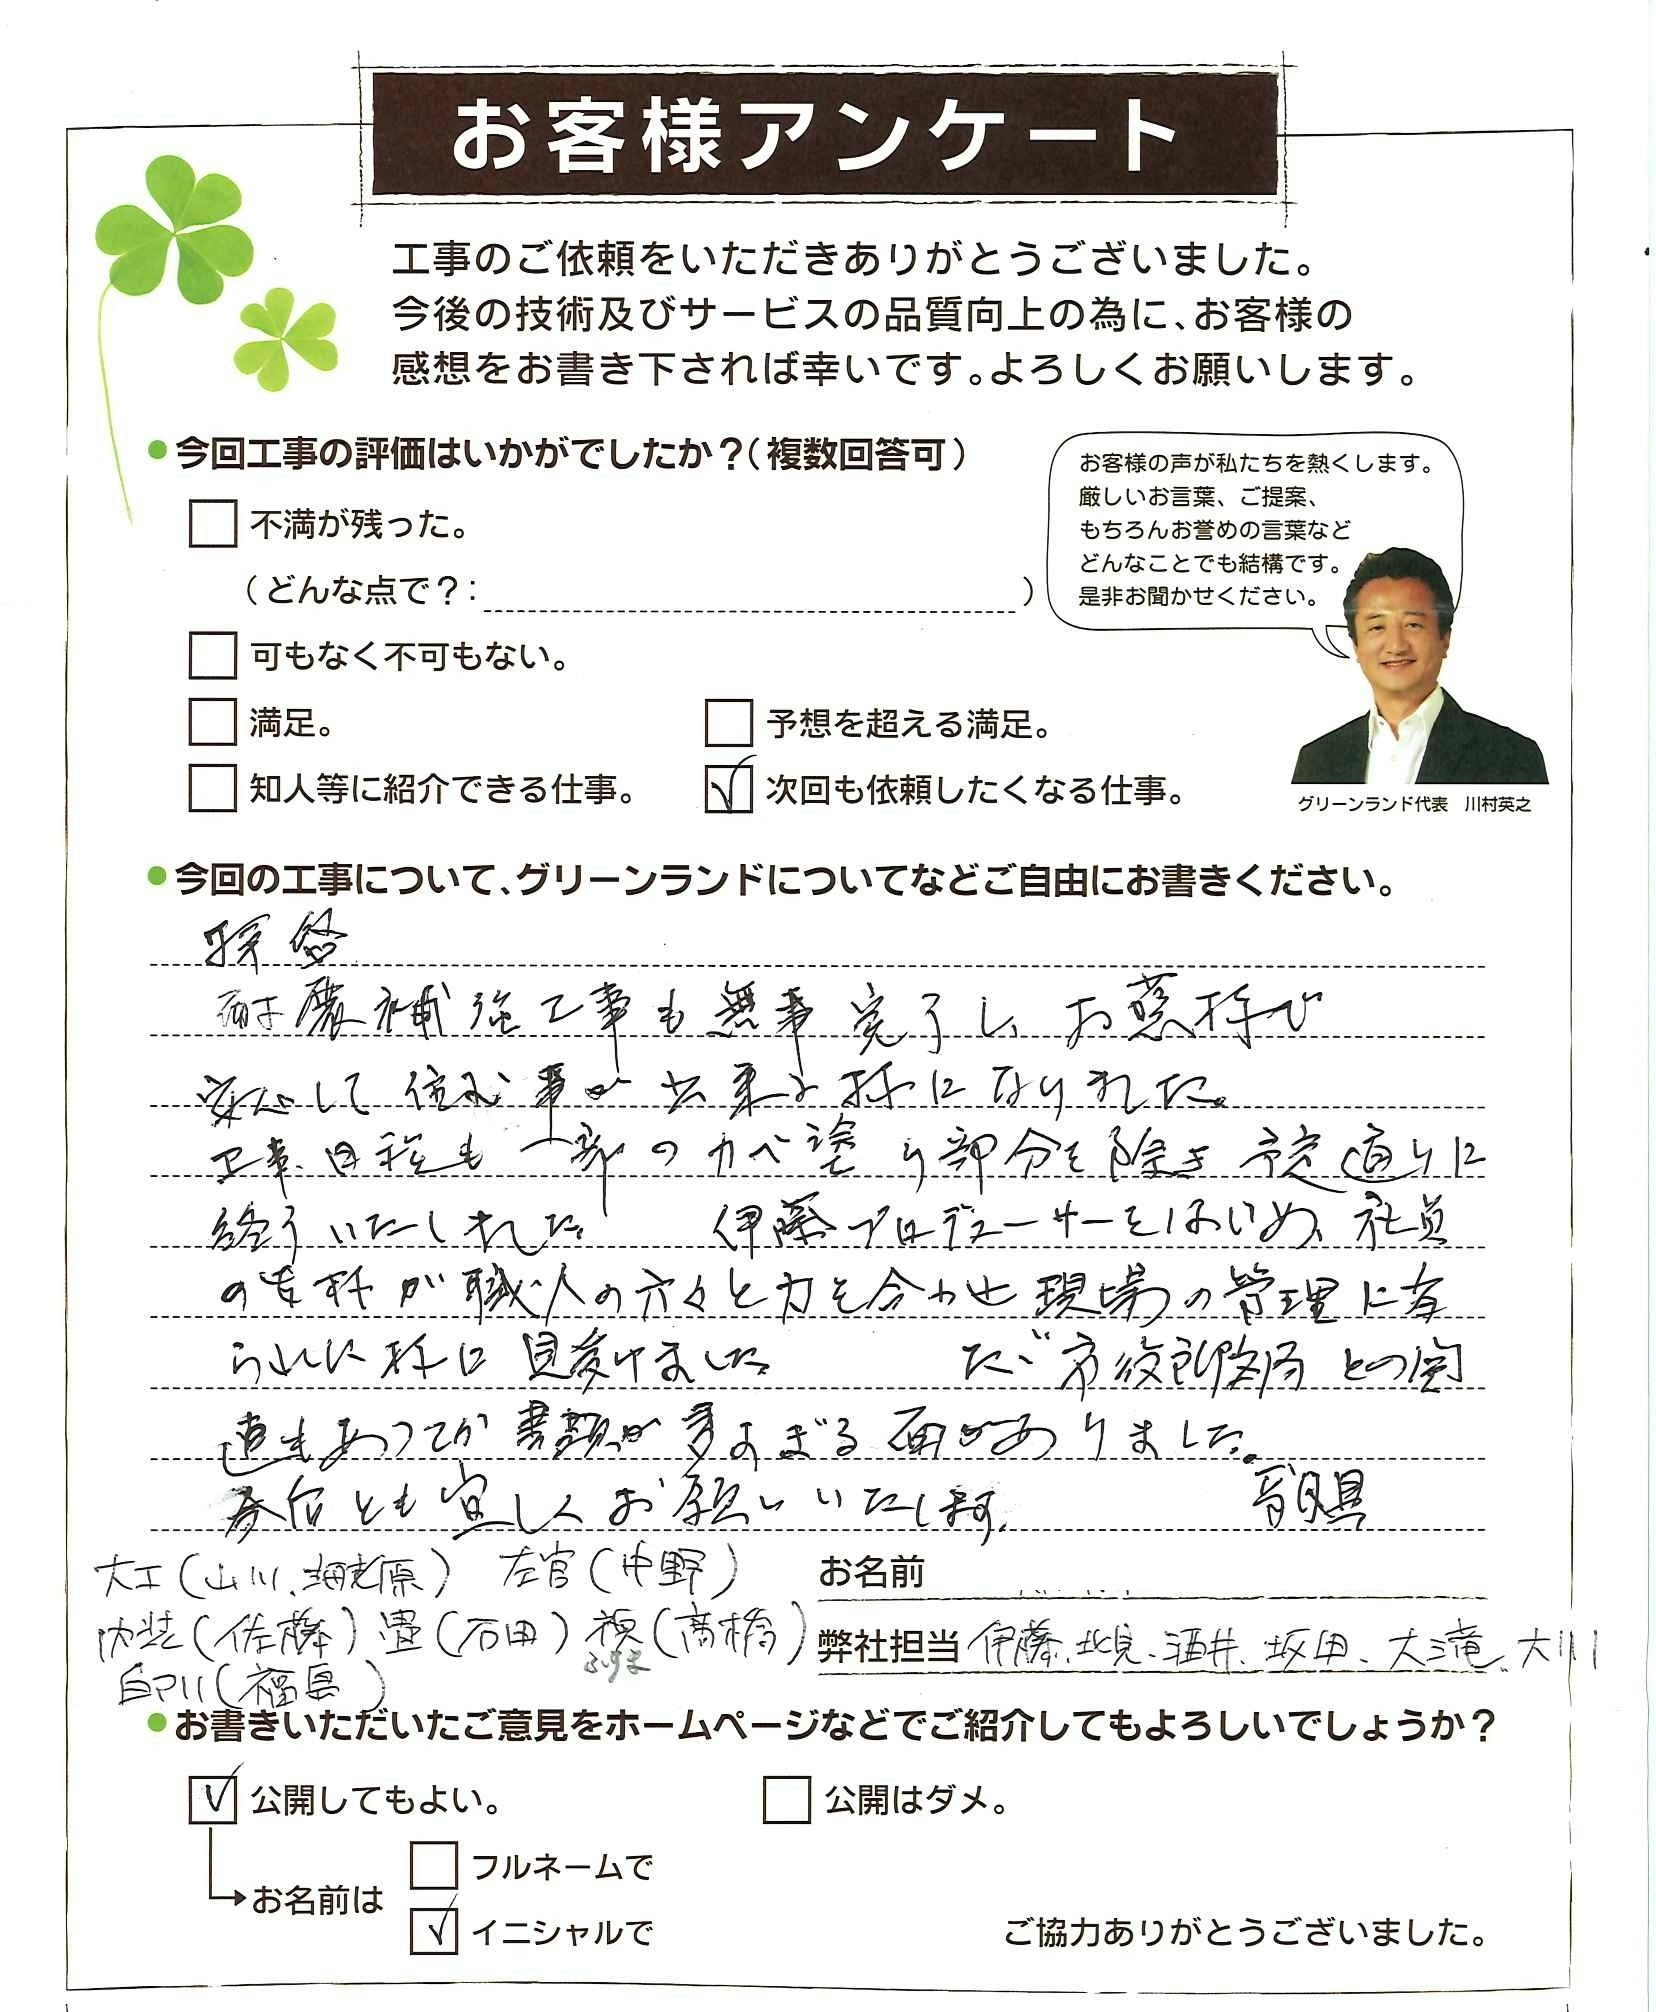 お客様アンケート
工事のご依頼をいただきありがとうございました。
今後の技術及びサービスの品質向上の為に、お客様の
感想をお書き下されば幸いです。よろしくお願いします。
●今回工事の評価はいかがでしたか？（複数回答可）
お客様の声が私たちを熱くします。
厳しいお言葉、ご提案、
もちろんお誉めの言葉など
どんなことでも結構です。
是非お聞かせください。
不満が残った。
（どんな点で？：　）
可もなく不可もない。
満足。
予想を超える満足。
知人等に紹介できる仕事。
次回も依頼したくなる仕事。
グリーンランド代表　川村英之
●今回の工事について、グリーンランドについてなどご自由にお書きください。
拝啓
耐震補強工事も無事完了し、お蔭様で
安心して住む事が出来る様になりました。
工事日程も一部のカベ塗り部分を除き予定通りに
終了いたしました。伊藤プロデューサーをはじめ、社員
の皆様が職人の方々と力を合わせ現場の管理に当
られた様に見受けました。ただ市役所 との関
連もあってか書類が多すぎる面がありました。
今后とも宜しくお願いいたします。敬具
大工（山川、海老原）　左官（中野）
お名前
内装（佐藤）畳（石田）襖（高橋）
ふすま
弊社担当 伊藤、北見、酒井、坂田、大三滝、大川
（福島）
●お書きいただいたご意見をホームページなどでご紹介してもよろしいでしょうか？
公開してもよい。
公開はダメ。
お名前は
フルネームで
イニシャルで
ご協力ありがとうございました。